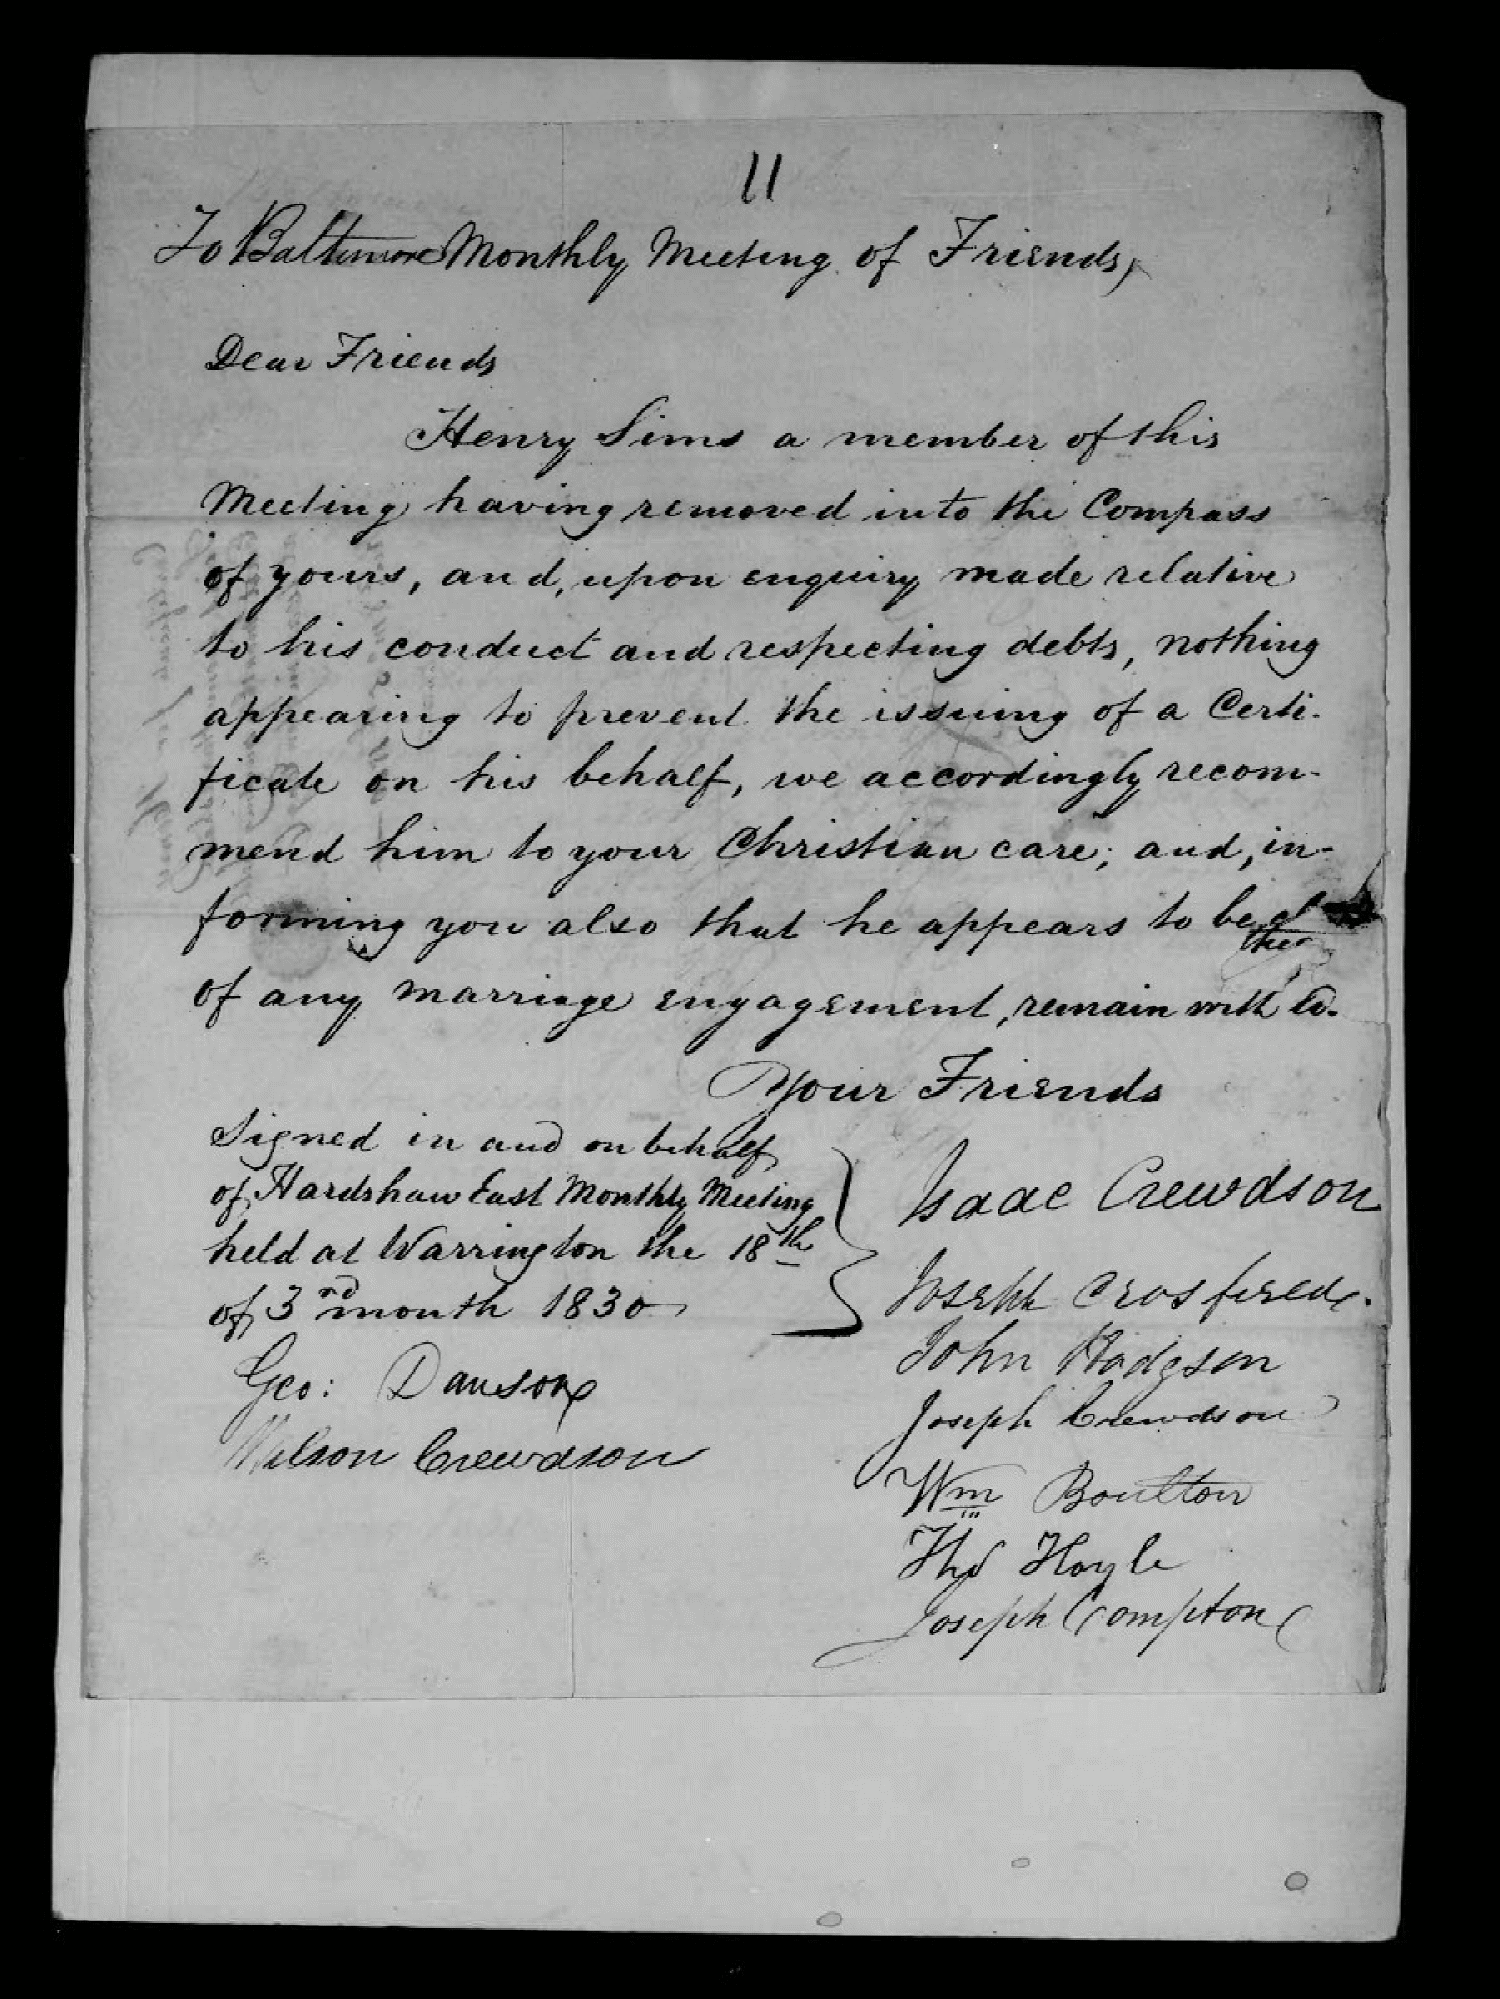 11
To Baltimore Monthly Meeting of Friends,
Dear Friends
Henry Sims a member of this
Meeting having removed into the Compass
of yours, and, upon enquiry made relative
to his conduct and respecting debts, nothing
appearing to prevent the issuing of a Certi-
ficate on his behalf, we accordingly recom-
mend him to your Christian care; and, in-
forming you also that he appears to be
of any marriage engagement, remain with
Your Friends
Signed in and on behalf
of Hardshaw East Monthly Meeting
held at Warrington the 18th
of 3rd month 1830
Geo: Dawson
Wilson Crewdson
Isaac Crewdson
Joseph Crosfield.
John Hodgson
Joseph Crewdson
Wm Boulton
Thos Hoyle
Joseph Compton